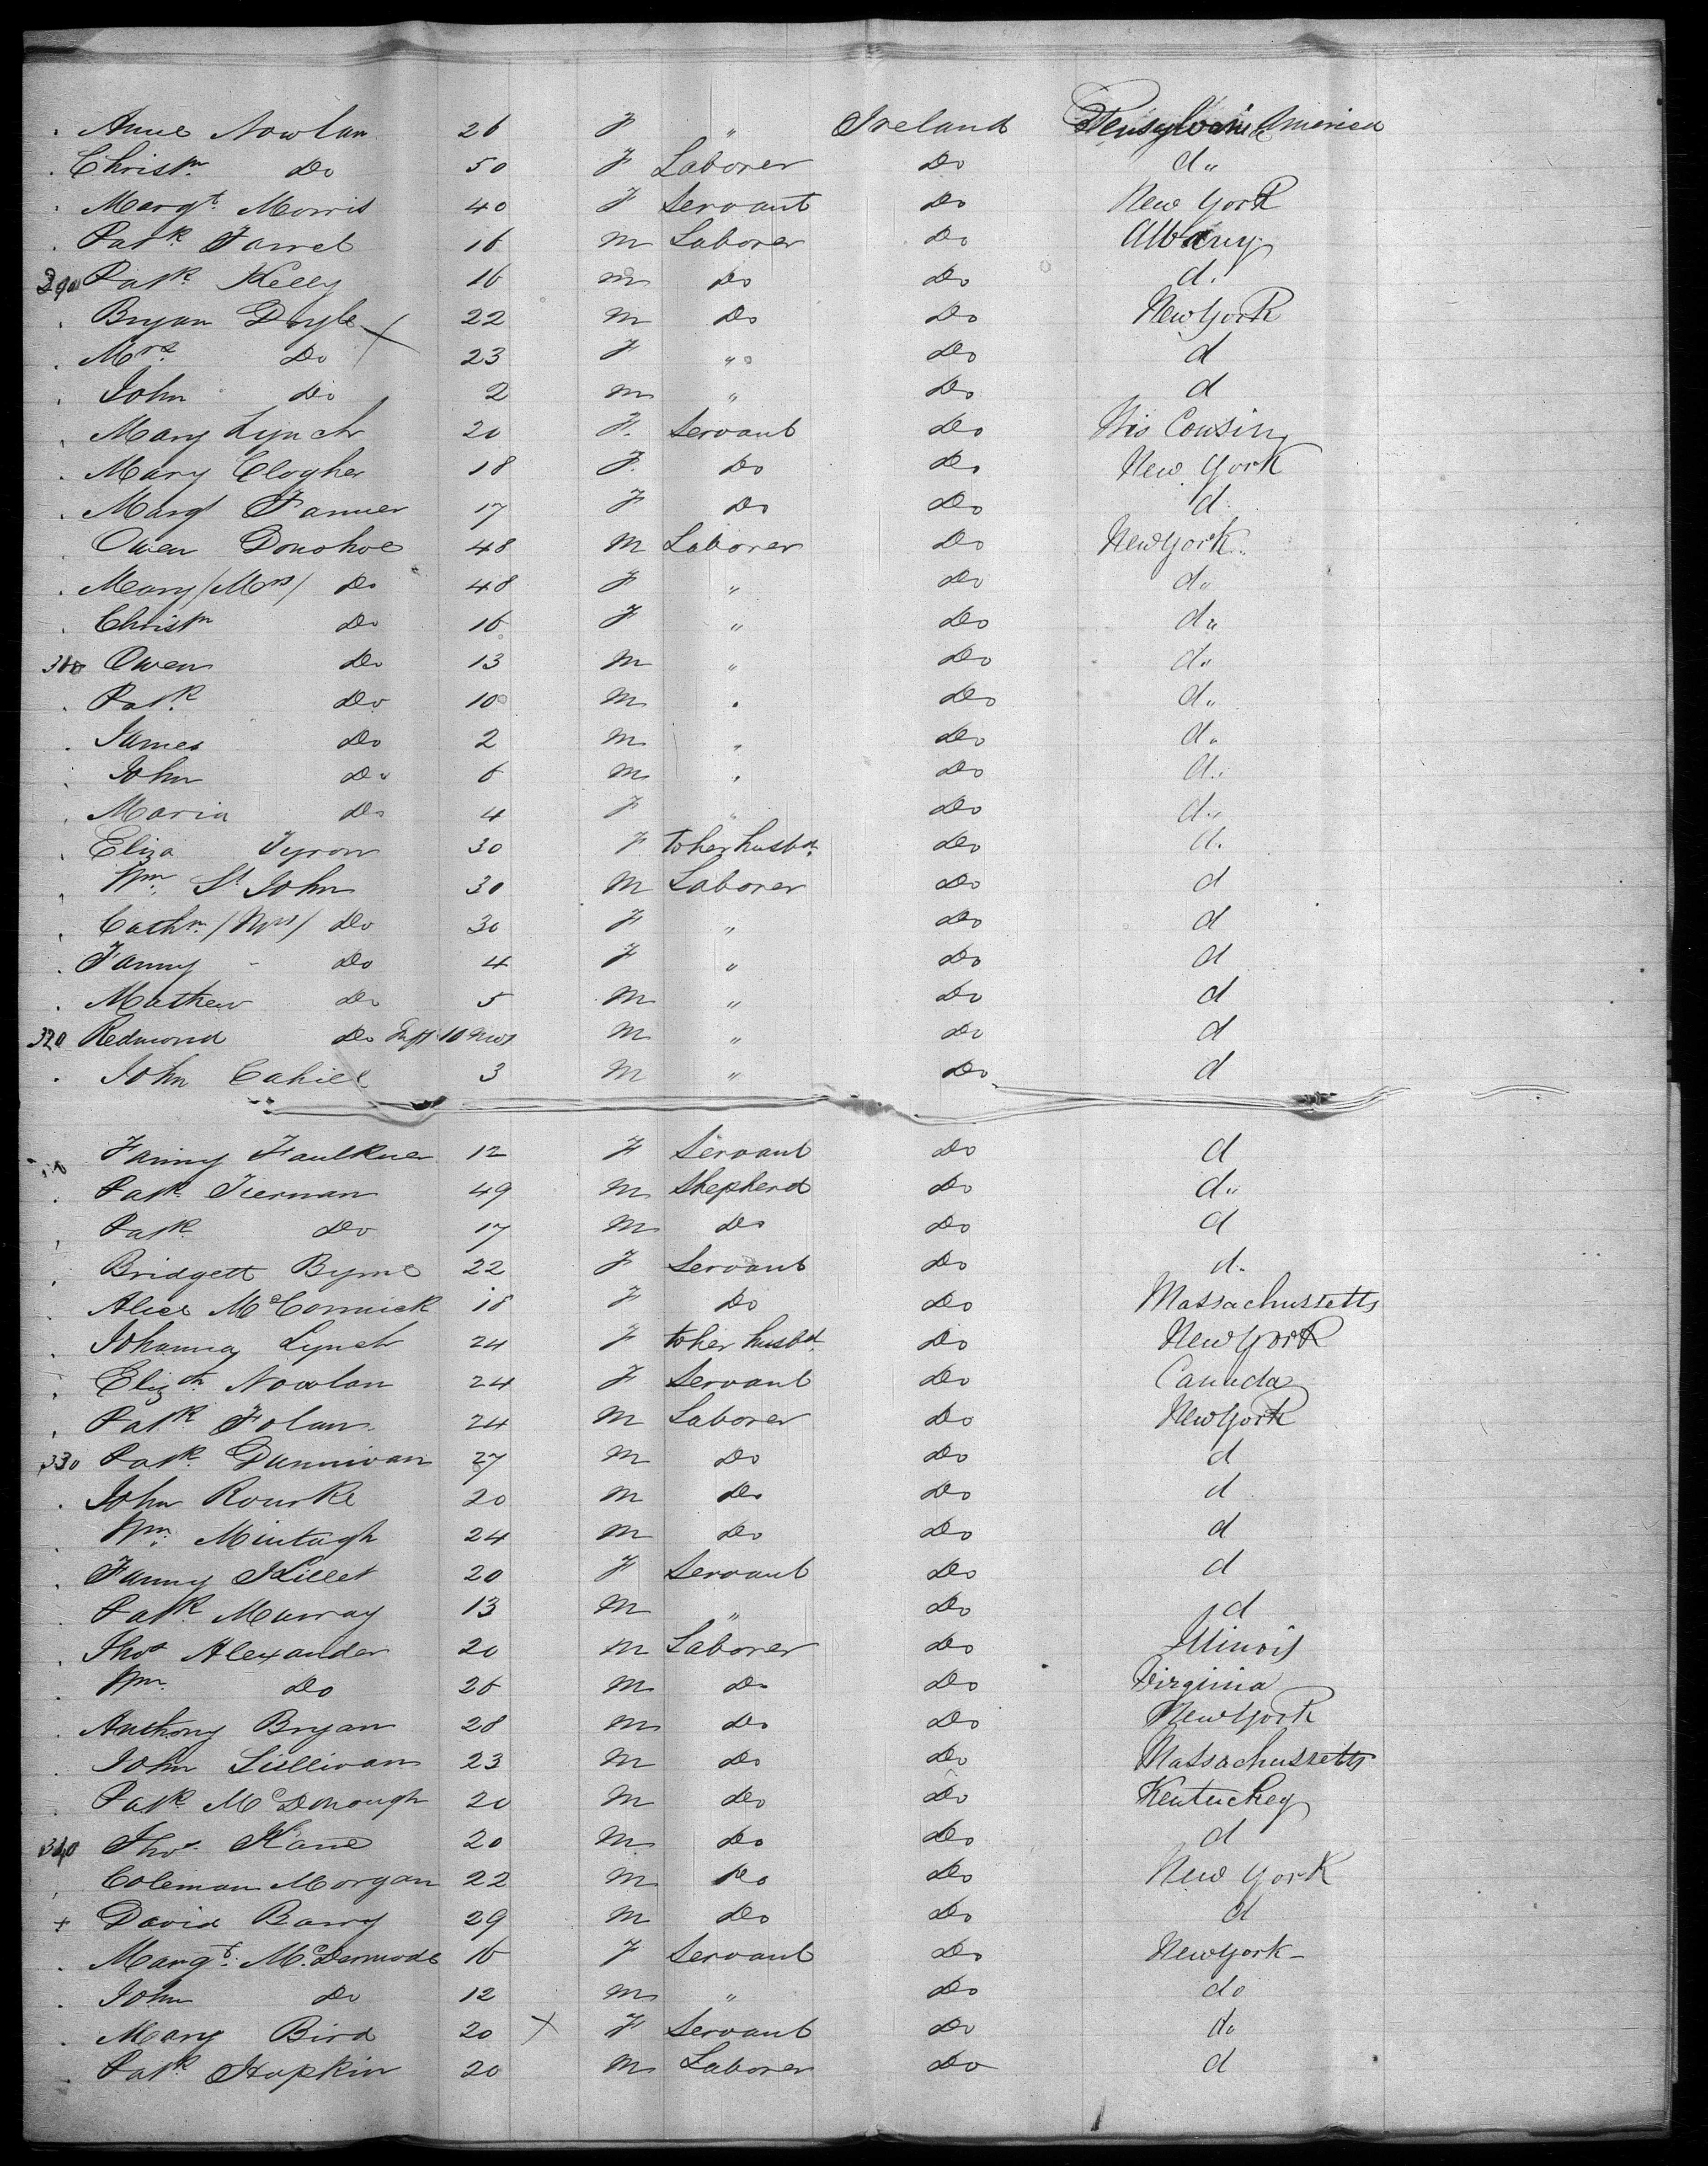 Anne Nowlan 26 F " Ireland Pensylvani America
Christn Do 50 F Laborer Do d"
Margt Morris 40 F Servant Do New York
Patk Farrel 16 M Laborer Do Albany
290 Patk Kelly 16 M Do Do d.
Bryan Doyle 22 M Do Do New York
Mrs Do 23 F " Do d
John Do 2 M " Do d
Mary Lynch 20 F. Servant Do Wis Consing
Mary Clogher 18 F. Do Do New York
Margt 17 F Do Do d.
Owen Donohoe 48 M Laborer Do New York
Mary /Mrs/ Do 48 F " Do d"
Christn Do 16 F " Do d"
Owen Do 13 M " Do d"
Patk Do 10 M " Do d"
James Do 2 M " Do d"
John Do 6 M " Do d"
Maria Do 4 F " Do d"
Eliza Tyron 30 F to her husbd Do d.
Wm St John 30 M Laborer Do d
Cathn /Mrs/ Do 30 F " Do d
Fanny Do 4 F " Do d
Mathew Do 5 M " Do d
Redmond Do Inft 10 mos M " Do d
John Cahill 3 M " Do d
Fanny Faulkner 12 F Servant Do d
Patk Tiernan 49 M Shepherd Do d"
Patk Do 17 M Do Do d
Bridgett Byrne 22 F Servant Do d.
Alice McCormick 18 F Do Do Massachussetts
Johanna Lynch 24 F to her husbd Do New York
Elizth Nowlan 24 F Servant Do Canada
Patk Folan 24 M Laborer Do New York
330 Patk Dunnivan 27 M Do Do d
John Rourke 20 M Do Do d
Wm Mintagh 24 M Do Do d
Fanny Killet 20 F Servant Do d
Patk Murray 13 M " Do d
Thos Alexander 20 M Laborer Do Illinois
Wm Do 26 M Do Do Virginia
Anthony Bryan 28 M Do Do New York
John Sullivan 23 M Do Do Massachussetts
Patk McDonough 20 M Do Do Kentuckey
340 Thos Kane 20 M Do Do d
Coleman Morgan 22 M Do Do New York
+ David Barry 29 M Do Do d
Margt McDermode 16 F Servant Do New York
John Do 12 M " Do do
Mary Bird 20 X F Servant Do do
Patk Hopkin 20 M Laborer Do d